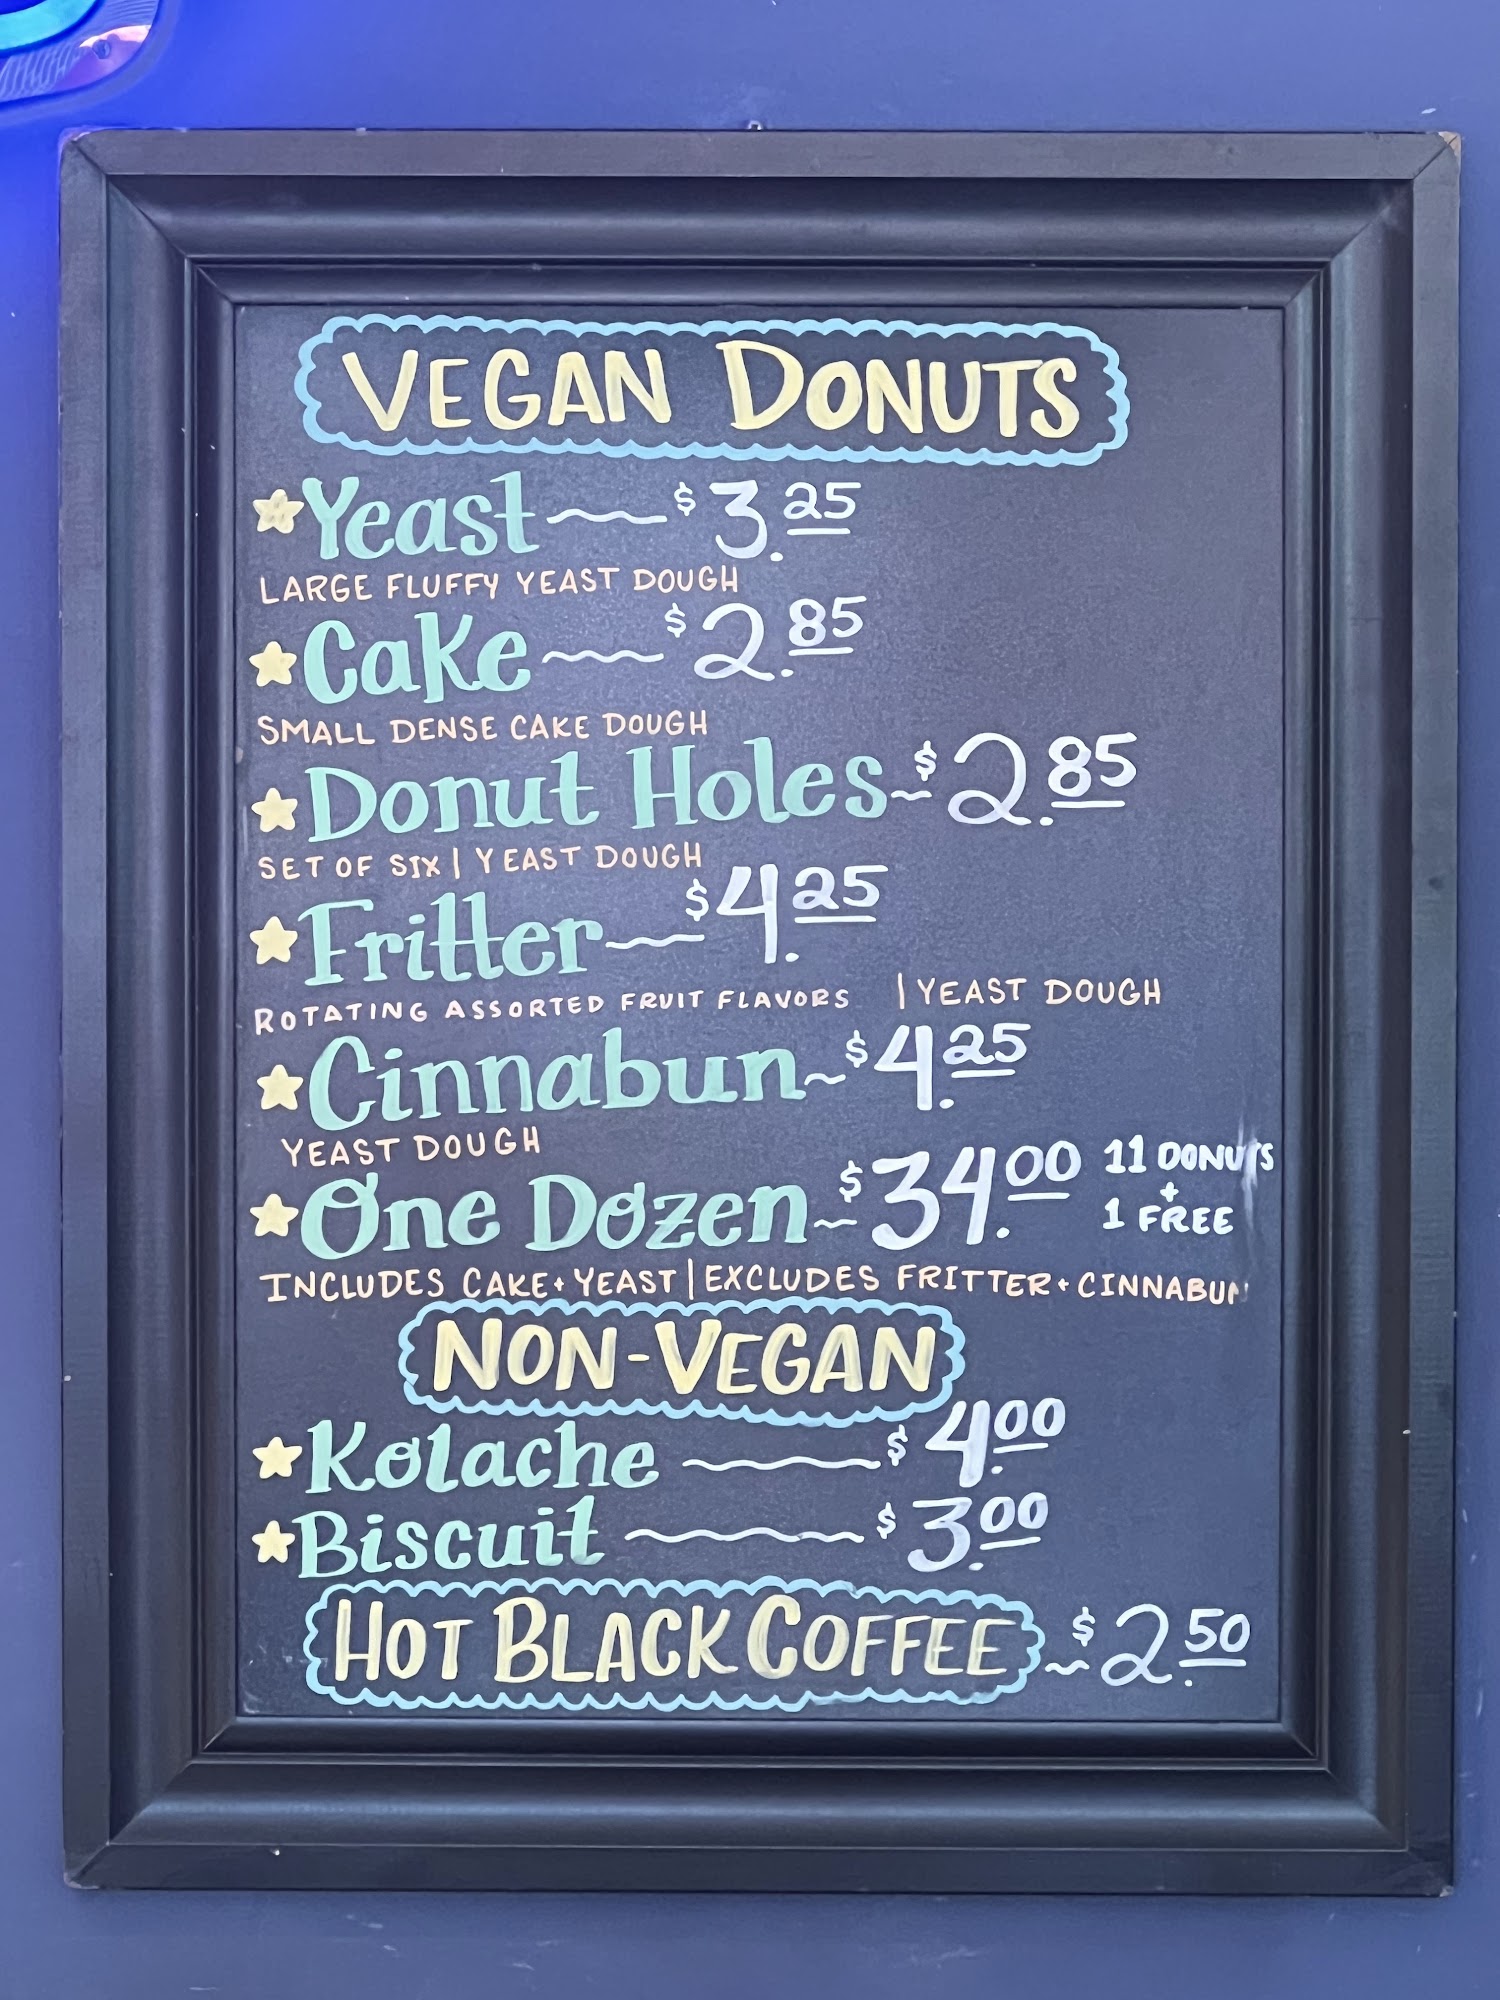 VEGAN DONUTS
Yeast $3.25
LARGE FLUFFY YEAST DOUGH
Cake $2.85
SMALL DENSE CAKE DOUGH
Donut Holes $2.85
SET OF SIX | YEAST DOUGH
Fritter $4.25
ROTATING ASSORTED FRUIT FLAVORS | YEAST DOUGH
Cinnabun $4.25
YEAST DOUGH
One Dozen $34.00 11 DONUTS + 1 FREE
INCLUDES CAKE + YEAST | EXCLUDES FRITTER + CINNABUN
NON-VEGAN
Kolache $4.00
Biscuit $3.00
HOT BLACK COFFEE $2.50